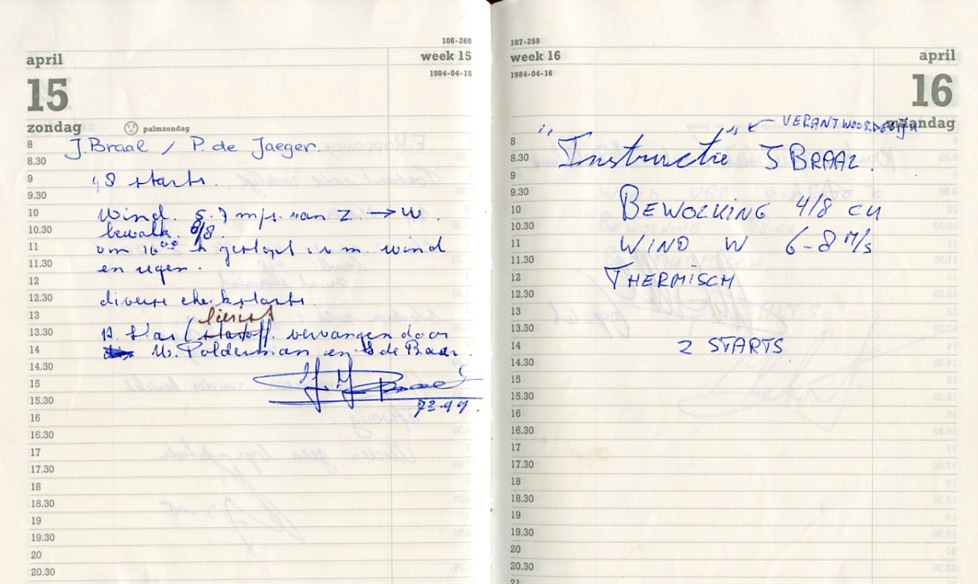 106-260
april
week 15
1984-04-15
15
zondag
palmzondag
8 J. Braal / P. de Jaeger.
8.30
9 18 starts.
9.30
10 Wind. 5. 7 m/s. van Z → W.
10.30 bewolk. 6/8.
11 om 16°° h gestopt i.v.m. wind
11.30 en regen.
12
12.30 diverse checkstarts.
13 lierist
13.30 H. Stas ( vervangen door
14 W. Polderman en de Baar.
14.30
15 Braal
15.30 72-99.
16
16.30
17
17.30
18
18.30
19
19.30
20
20.30
107-259
week 16
april
1984-04-16
16
maandag
← VERANTWOORDELIJK
8 "Instructie" J BRAAL.
8.30
9
9.30
10 BEWOLKING 4/8 CU
10.30
11 WIND W 6-8 M/s
11.30
12 THERMISCH
12.30
13
13.30
14 2 STARTS
14.30
15
15.30
16
16.30
17
17.30
18
18.30
19
19.30
20
20.30
21